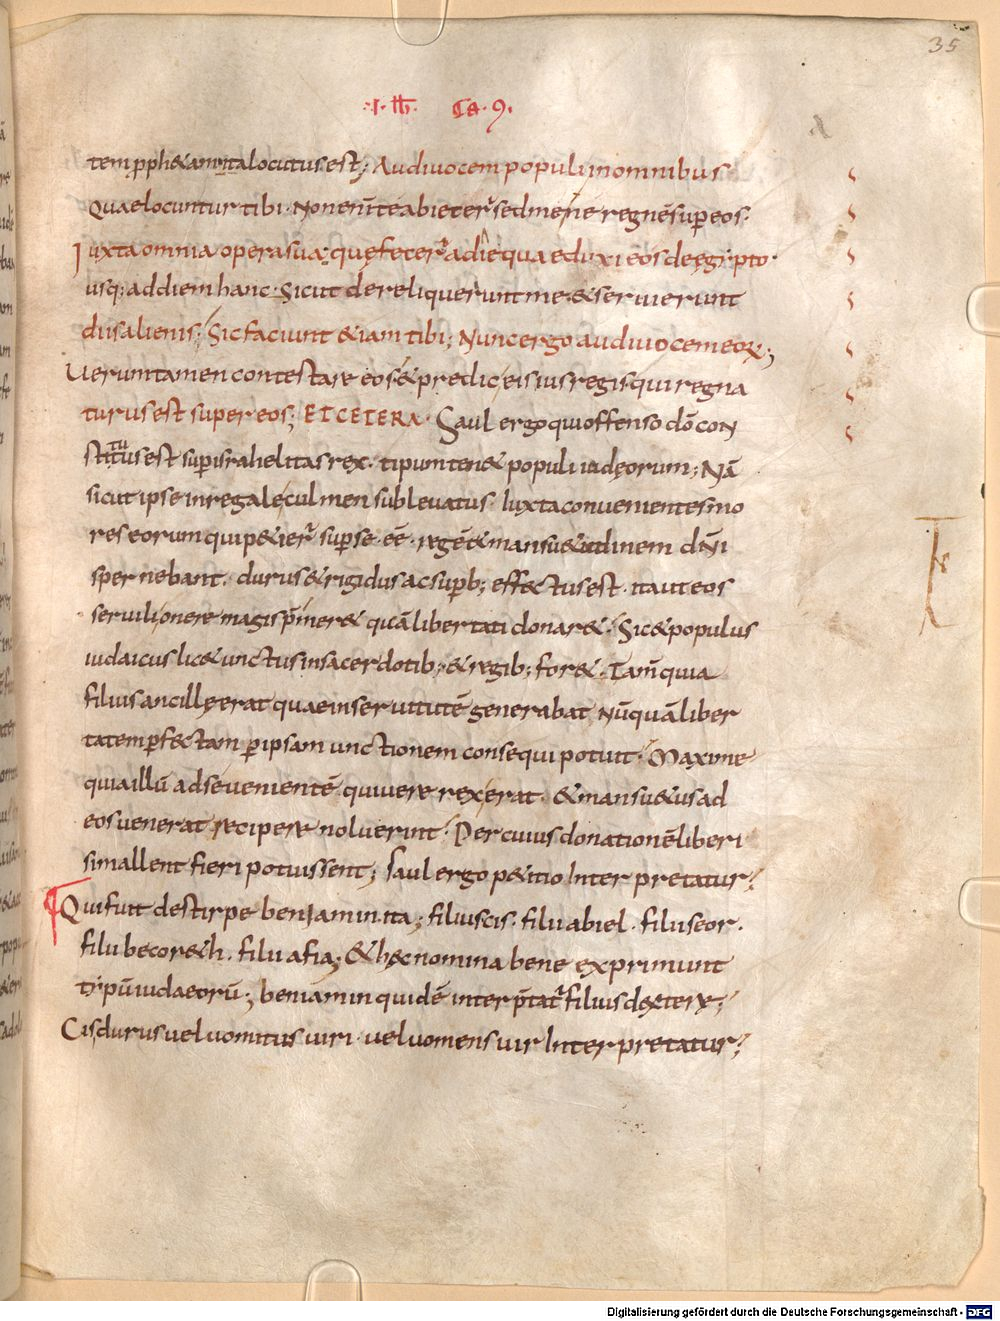 35
·I· lib. Ca. 9.
tem pphetam ita locutus est; Audi uocem populi in omnibus
Quae locuntur tibi. Non enim te abiecer̃ sed me ne regnẽ sup eos.
Iuxta omnia opera sua; quę fecer̃ a die qua eduxi eos de ęgipto.
usq; ad diem hanc. Sicut dereliquerunt me & seruierunt
diis alienis; Sic faciunt & iam tibi; Nunc ergo audi uocem eorꝝ;
Ueruntamen contestare eos & predic eis ius regis qui regna
turus est super eos; ET CETERA. Saul ergo qui offenso dō con
stitutus est sup israhelitas rex. tipum ten& populi iudęorum; Nā
sicut ipse in regale culmen subleuatus. Iuxta conuenientes mo
res eorum qui p&ier̃ sup se. eē. regē & mansu&udinem dn̄i
spernebant. durus & rigidus ac supb; effectus est. ita ut eos
seruili onere magis p̄mer& quā libertati donar&. Sic & populus
iudaicus lic& unctus in sacerdotib; & regib; for&. Tam̄ quia
filius ancillę erat quae in seruitutē generabat, Nūquā liber
tatem pfectam p ipsam unctionem consequi potuit. Maxime
quia illū ad se uenientē qui uere rex erat. & mansu&us ad
eos uenerat recipere noluerint. Per cuius donationē liberi
si mallent fieri potuissent; Saul ergo p&itio Interpretatur;
Qui fuit de stirpe beniaminita; filius cis. filii abiel. filii seor.
filii becor&h. filii afia; & hęc nomina bene exprimunt
tipū iudaeorū; beniamin quidē interp̄tat̃ filius dęxterę;
Cis durus uel uomitus uiri. uel uomens uir Interpretatur;
Digitalisierung gefördert durch die Deutsche Forschungsgemeinschaft - DFG